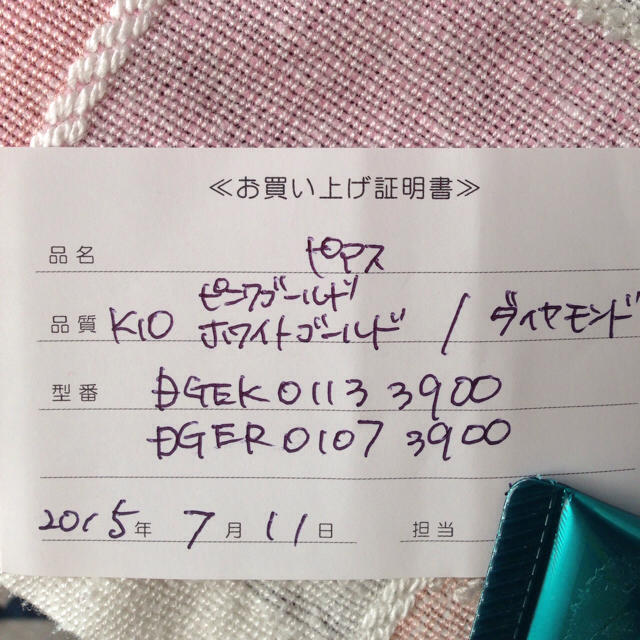 ≪お買い上げ証明書≫
品名 ピアス
ピンクゴールド
品質 K10 ホワイトゴールド / ダイヤモンド
型番 DGEK0113 3900
DGER0107 3900
2015年 7月 11日 担当